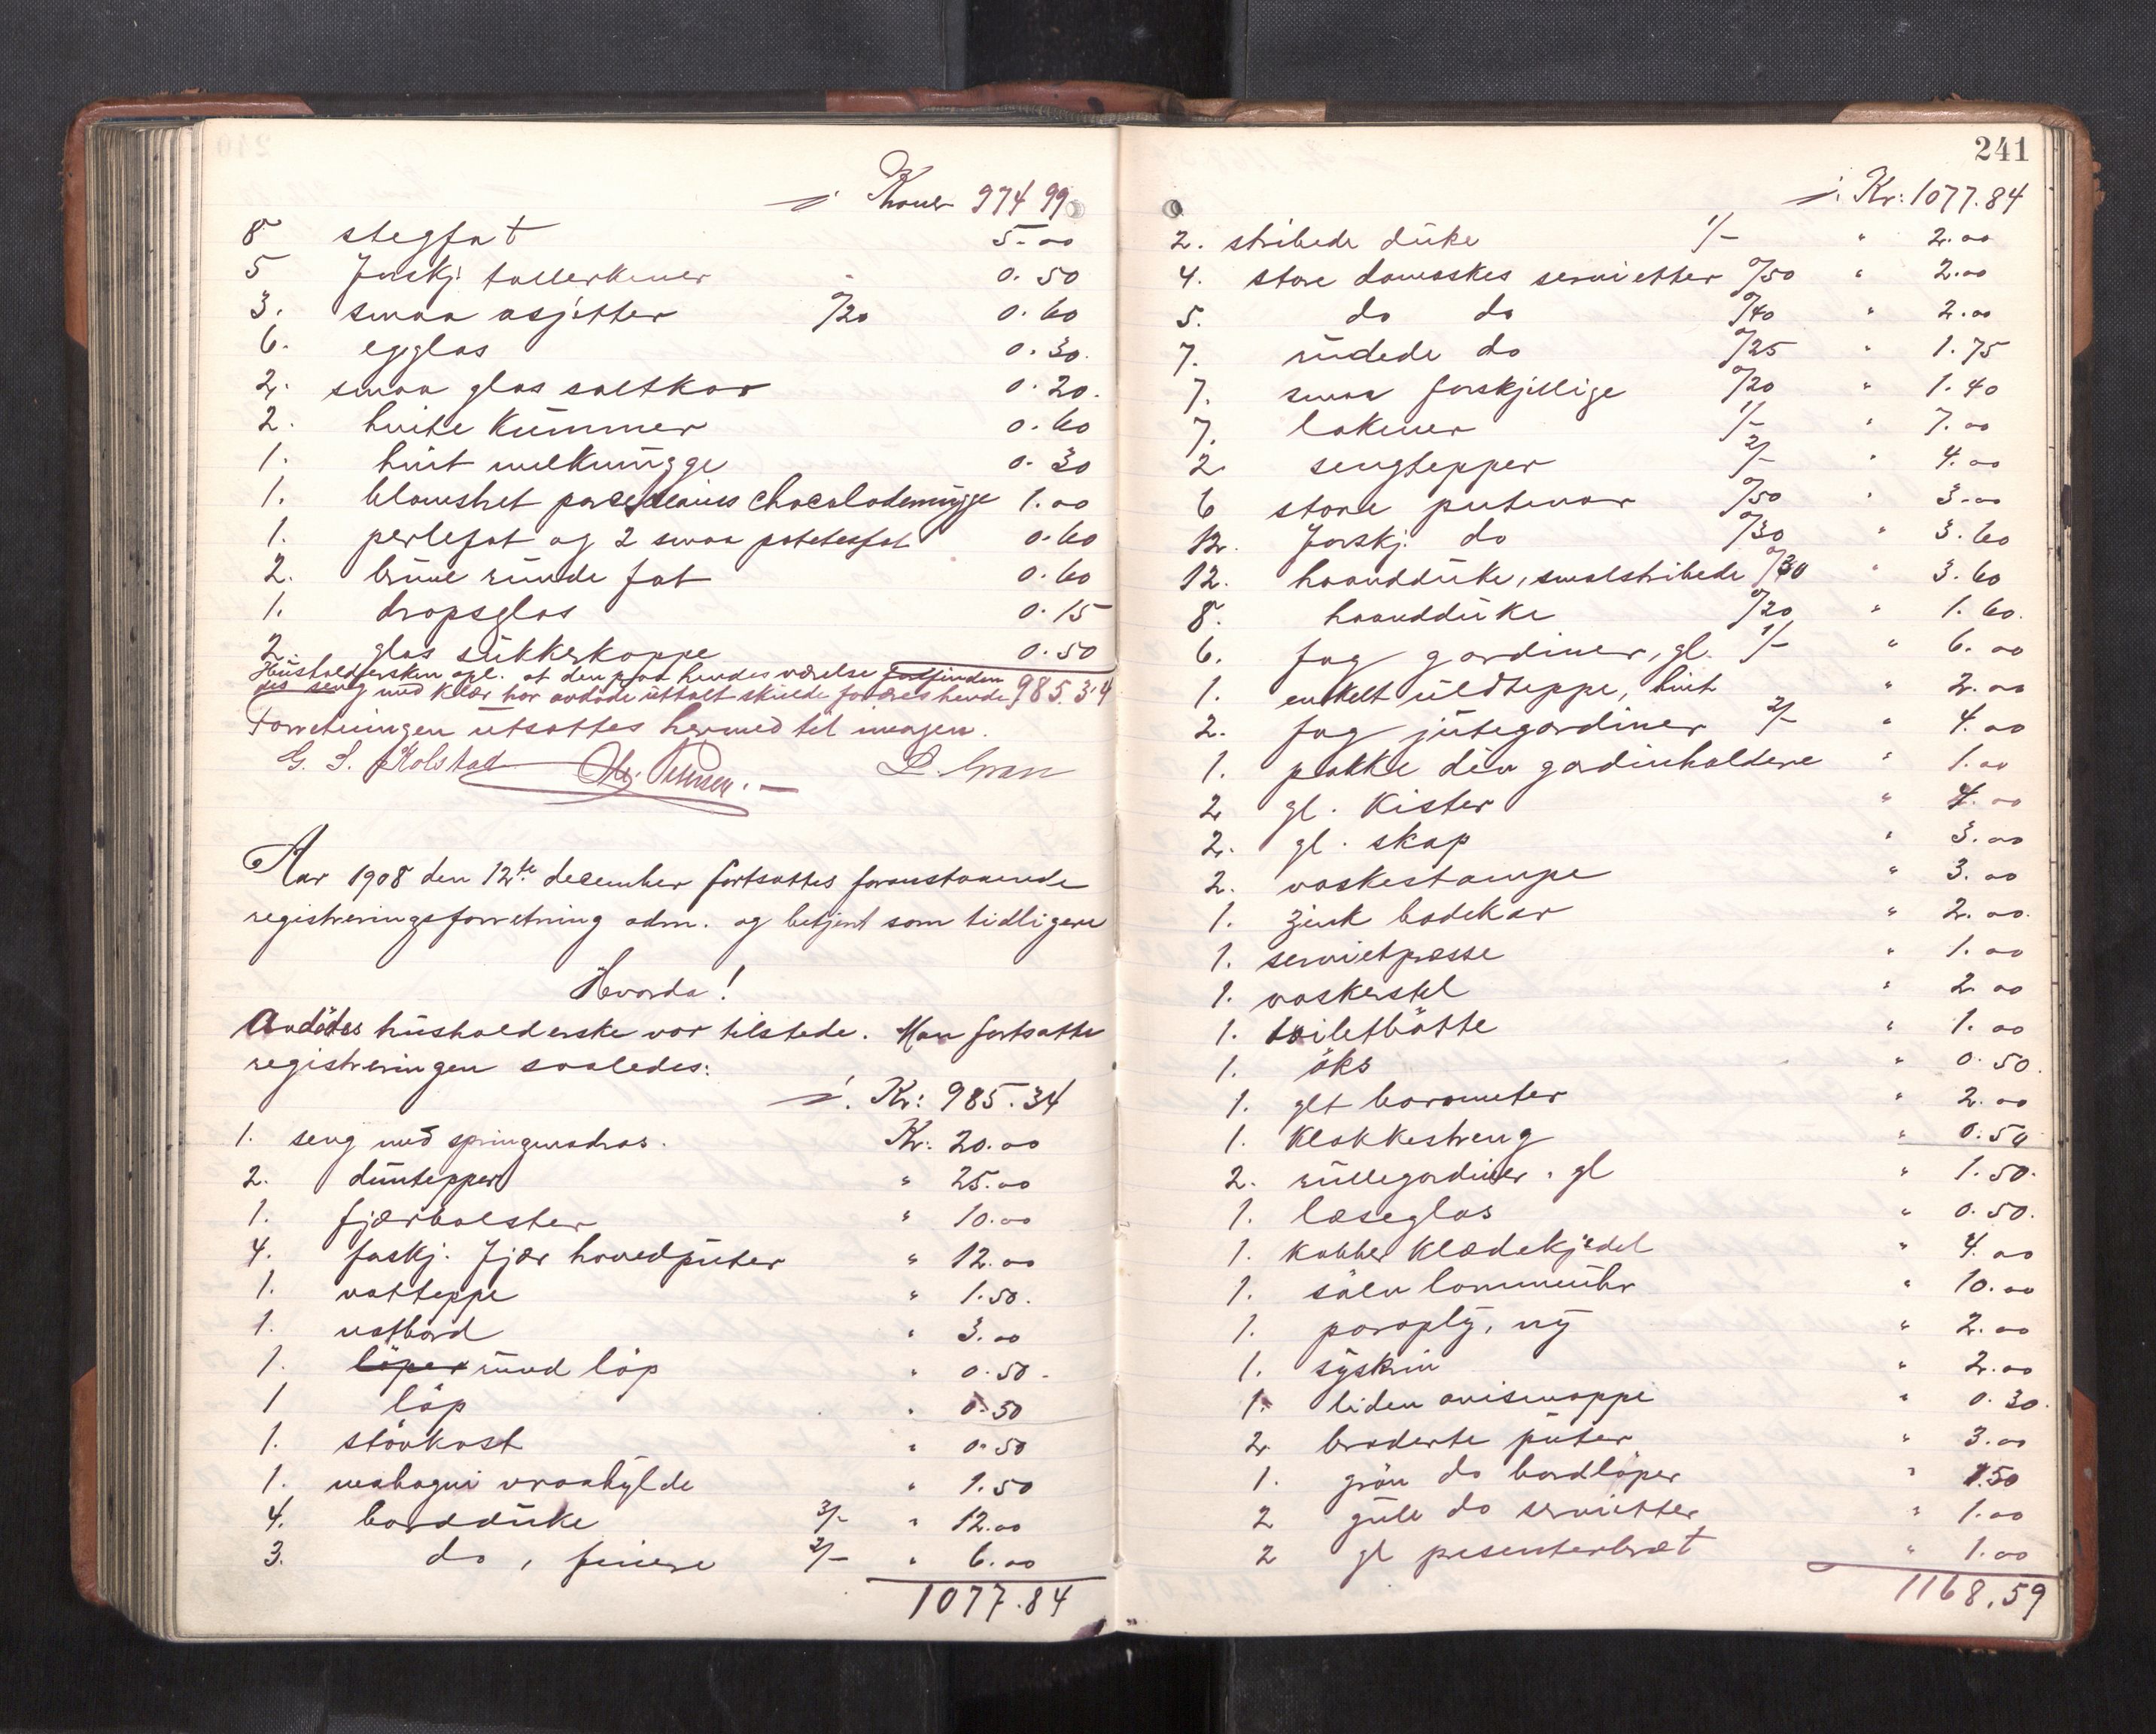 ÷ Kroner 974 99
8 stegfat 5.00
5 forskj. tallerkener " 0.50
3. smaa asjetter 0/20 0.60
6. egglas 0.30.
2. smaa glas saltkar 0.20.
2. hvite Kummer 0.60
1. hvit melkmugge 0.30
1. blomstret porcelains chocolademugge 1.00
1. perlefat og 2 smaa potetesfat 0.60
2. brune runde fat 0.60
1. dropsglas 0.15
2. glas sukkerkoppe 0.50
Husholdersken opl. at den paa hendes værelse befinden
des seng med klær har avdöde uttalt skulde foræres hende 985.34
Forretningen utsattes hermed til imorgen.
G. S. Kolstad L. Gran
Aar 1908 den 12te december fortsattes foranstaaende
registreringsforretning adm. og betjent som tidligere
Hvorda!
Avdödes husholderske var tilstede. Man fortsatte
registreringen saaledes:
÷ Kr: 985.34
1. seng med springmadras. Kr: 20.00
2. duntepper " 25.00
1. fjærbolster " 10.00
4. forskj. fjær hovedputer " 12.00
1. vatteppe " 1.50.
1. natbord " 3.00
1. löper rund löp " 0.50.
1 löp " 0.50
1. stövkost " 0.50
1. mahogni vraahylde " 1.50
4. bordduke 3/- " 12.00
3. do, finere 2/- " 6.00
1077.84
241
÷ Kr: 1077.84
2. stribede duke 1/- " 2.00
4. store damaskes servietter 0/50 " 2.00
5. do do 0/40 " 2.00
7. rudede do 0/25 " 1.75
7. smaa forskjellige 0/20 " 1.40
7. lakener 1/- " 7.00
2. sengtepper 2/- " 4.00
6 store putevar 0/50 " 3.00
12. forskj. do 0/30 " 3.60
12. haandduke, smalstribede 0/30 " 3.60
8. haandduke 0/20 " 1.60.
6. fag gardiner, gl. 1/- " 6.00
1. enkelt uldteppe, hvit " 2.00
2. fag jutegardiner 2/- " 4.00
1. pakke div gardinholdere " 1.00
2 gl. Kister " 4.00
2. gl. skap " 3.00
2. vaskestampe " 3.00
1. zink badekar " 2.00.
1. servietpresse " 1.00
1. vaskerstel " 2.00
1. toiletbötte " 1.00
1. öks " 0.50.
1. glt barometer " 2.00
1. Klokkestreng " 0.50
2. rullegardiner, gl " 1.50.
1. læseglas " 0.50.
1. Kobber Klædekjedel " 4.00
1. sölv lommeuhr " 10.00
1. paraply, ny " 2.00
1. syskrin " 2.00
1. liden avismappe " 0.30.
2. broderte puter " 3.00
1. grön do bordlöper " 1.50
2 gule do servietter " 1.00
2 gl presenterbræt " 1.00
1168.59